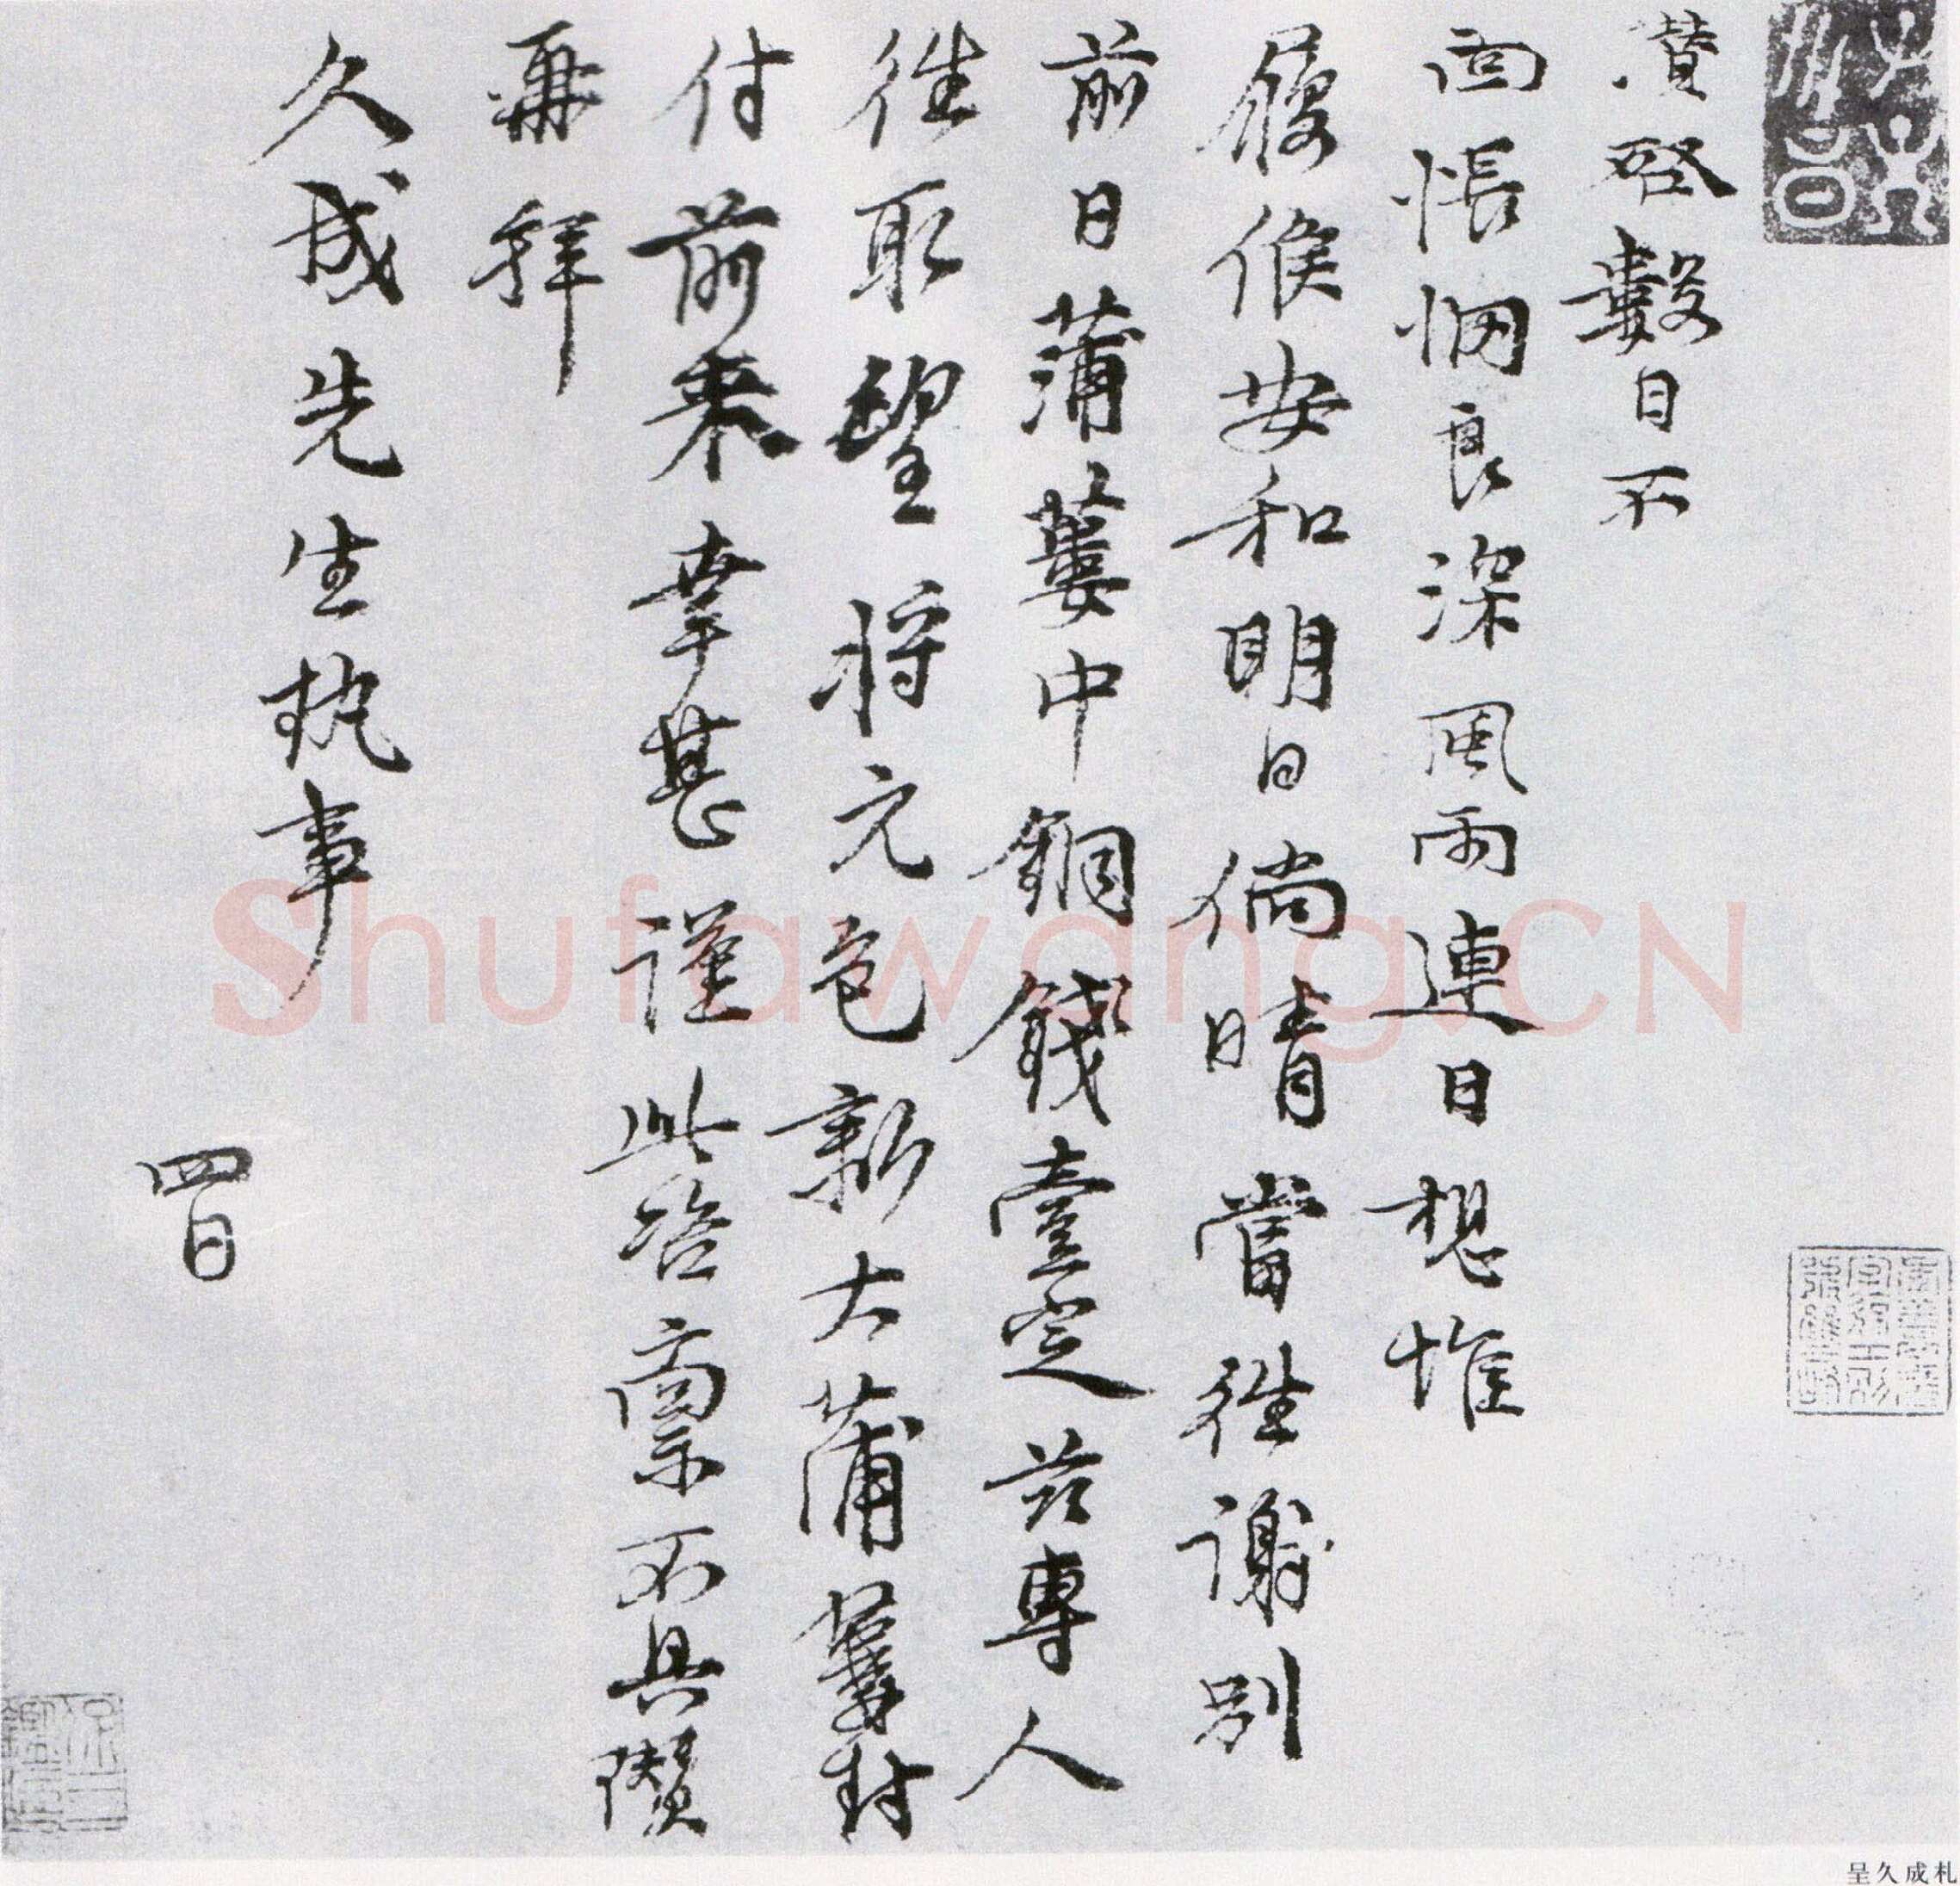 瓚啓數日不
面悵惘良深風雨連日想惟
履候安和明日倘晴當往謝別
前日蒲蔞中銅錢壹定茲專人
往取望將元色新大蒲蔞封
付前來幸甚謹此咨稟不具瓚
再拜
久成先生執事
四日
Shufawang.CN
呈久成札